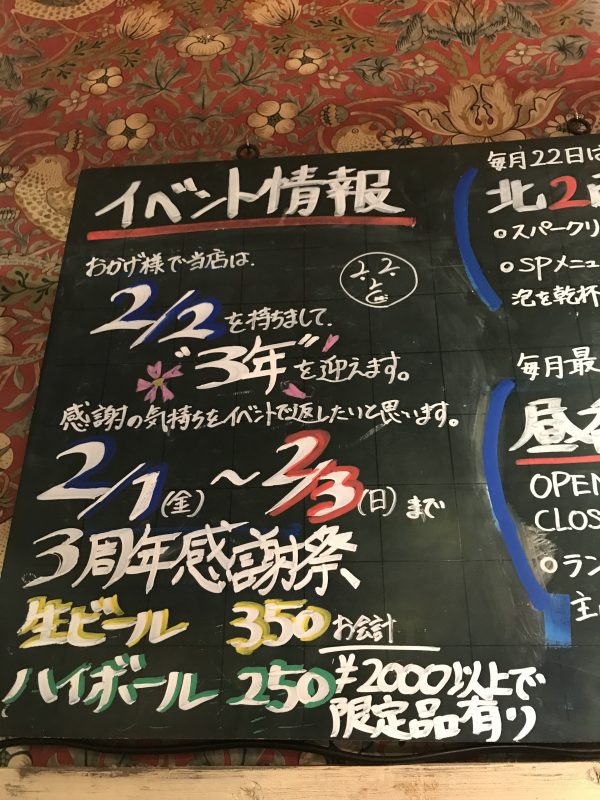 イベント情報
おかげ様で当店は.
2/2を持ちまして.
"3年"を迎えます。
感謝の気持ちをイベントで返したいと思います。
2/1(金)～2/3(日)まで
3周年感謝祭
生ビール 350
ハイボール 250
お会計
¥2000以上で
限定品有り
2.2.
毎月22日は
北2
スパークリ
SPメニュ
泡を乾杯
毎月最
昼
OPEN
CLOS
ラン
主